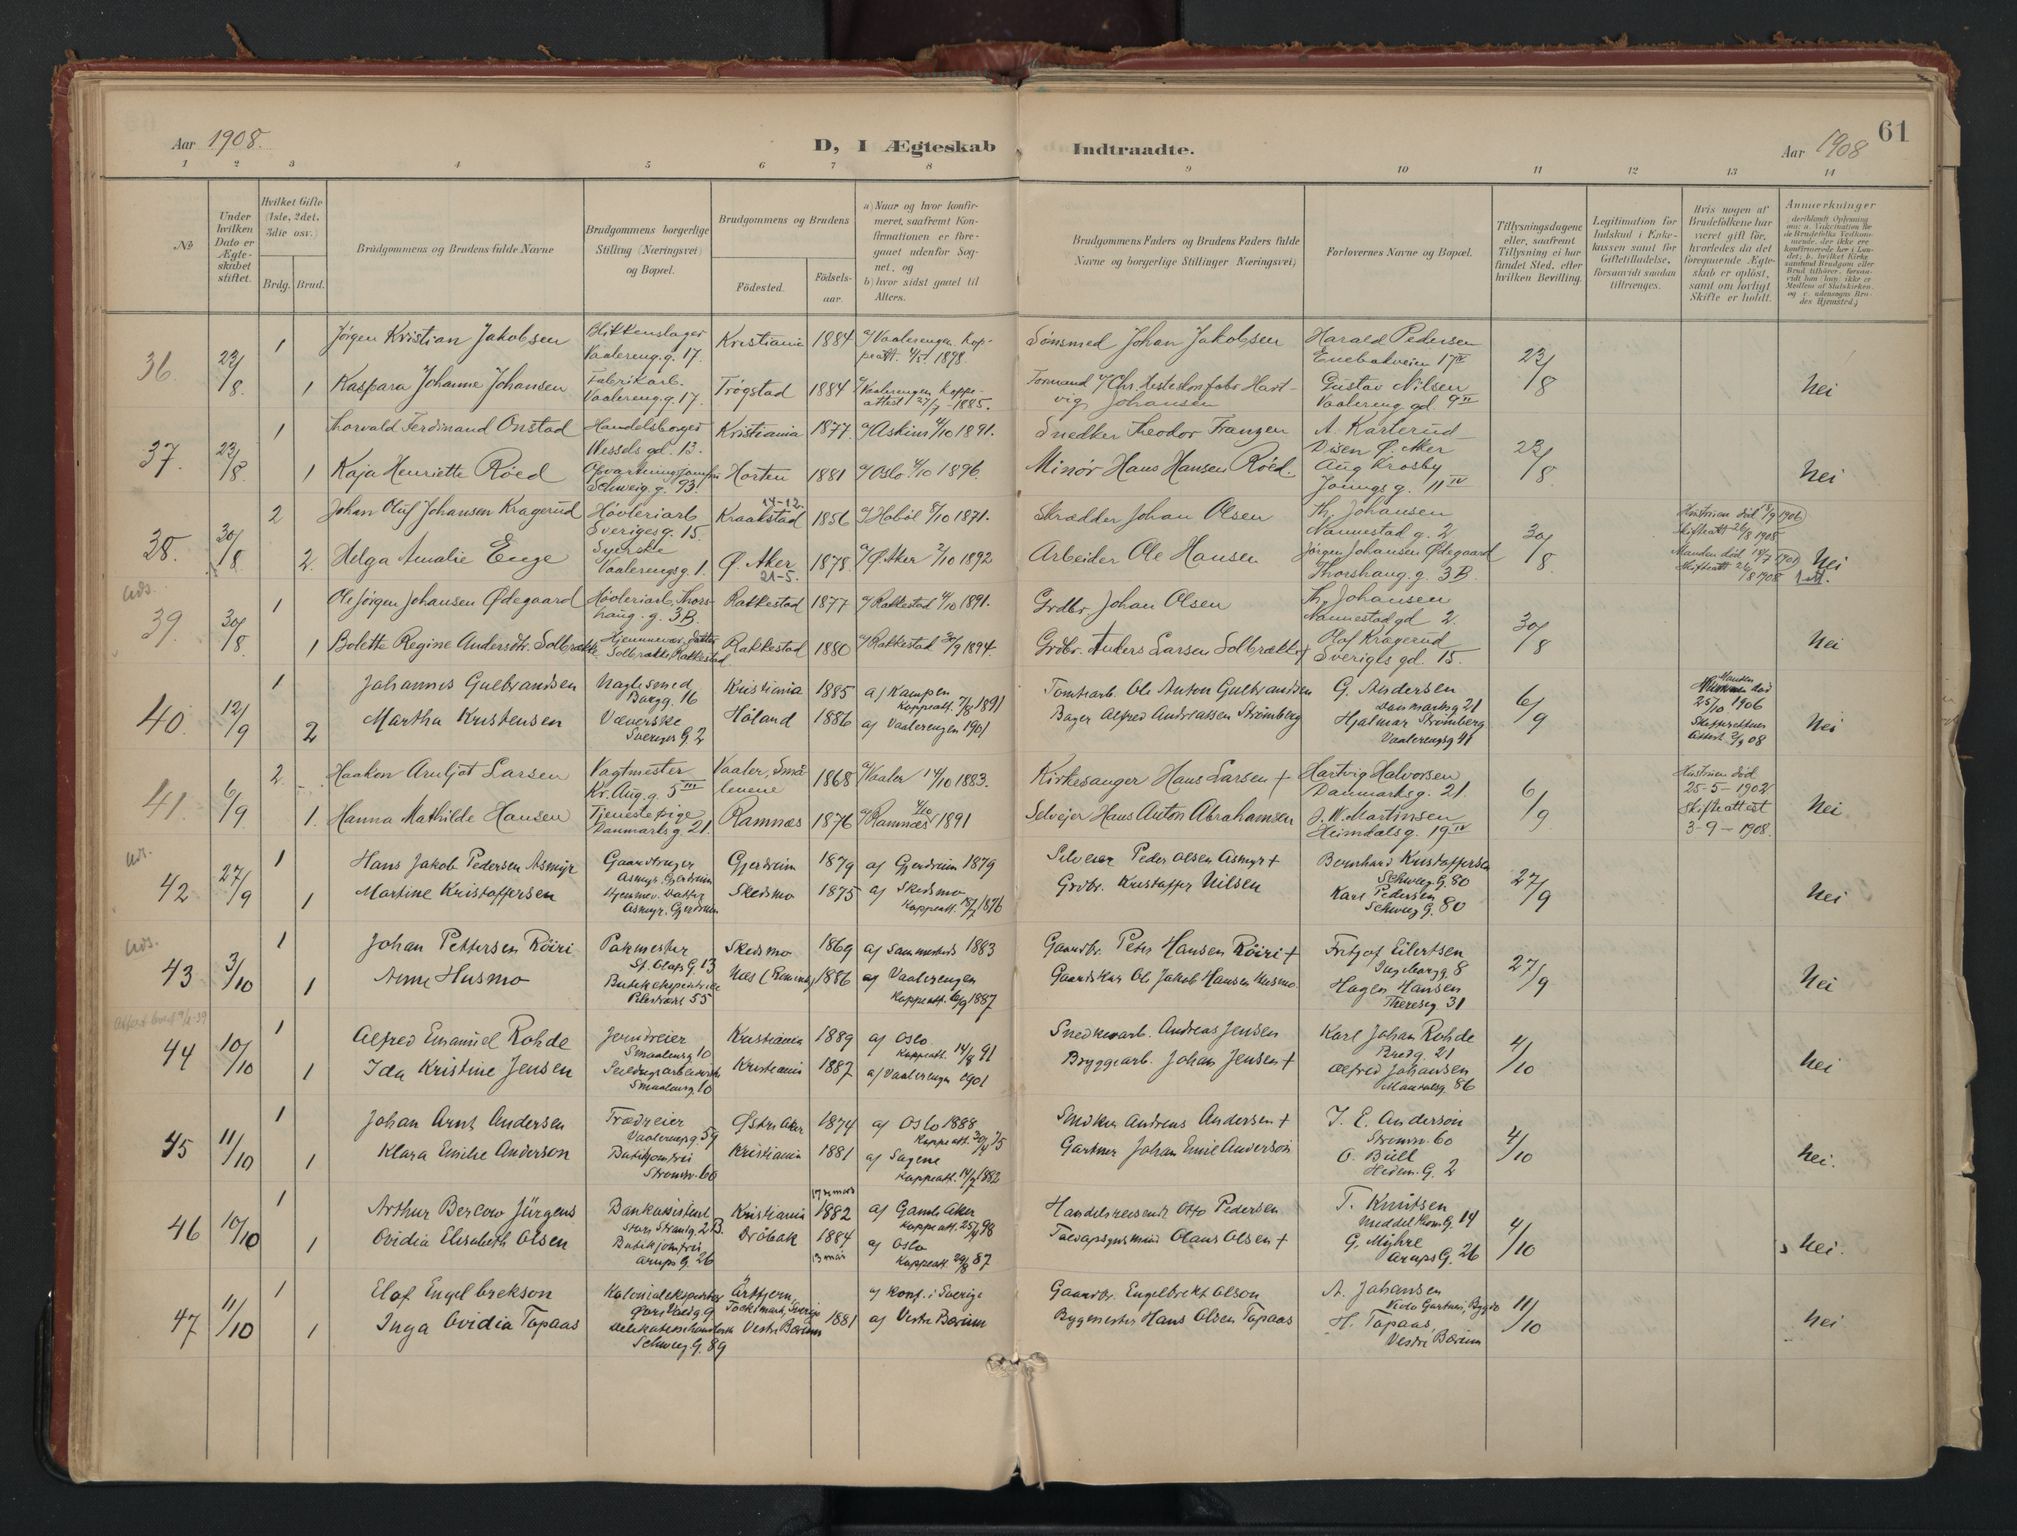 Aar 1908. D, I Ægteskab Indtraadte. Aar 1908 61
1 2 3 4 5 6 7 8 9 10 11 12 13 14
No
Under hvilken Dato er Ægteskabet stiftet.
Hvilket Gifte (1ste, 2det, 3die osv.)
Brdg. Brud.
Brudgommens og Brudens fulde Navne
Brudgommens borgerlige Stilling (Næringsvei) og Bopæl.
Brudgommens og Brudens
Fødested. Fødselsaar.
a) Naar og hvor konfirmeret, saafremt Konfirmationen er foregaaet udenfor Sognet, og
b) hvor sidst gaaet til Alters.
Brudgommens Faders og Brudens Faders fulde Navne og borgerlige Stillinger Næringsvei)
Forlovernes Navne og Bopæl.
Tillysningsdagene eller, saafremt Tillysning ei har fundet Sted, efter hvilken Bevilling.
Legitimation for Indskud i Enkekassen samt for Giftetilladelse, forsaavidt saadan tiltrænges.
Hvis nogen af Brudefolkene har været gift før, hvorledes da det foregaaende Ægteskab er opløst, samt om lovligt Skifte er holdt.
Anmærkninger
36. 23/8 1 Jørgen Kristian Jakobsen Blikkenslager Vaalereng.g. 17. Kristiania 1884 a/ Vaalerengen Sønsmed Johan Jakobsen Harald Pedersen Enebakveien 17 IV 23/8
1 Kaspara Johanne Johansen Fabrikarb. Vaalereng.g. 17. Trøgstad 1884 Vaalerengen Koppeattest 27/7 - 1885. Johansen Gustav Nilsen Vaalereng gd. 9 II Nei
37. 23/8 1 Thorvald Ferdinand Onstad Handelsborger Wessels gd. 13. Kristiania 1877. a/ Askim 4/10 1891. Snedker Theodor Franzen A. Karterud Disen Ø. Aker 23/8
1 Kaja Henriette Røed Schweig.g. 93. Horten 1881 a/ Oslo 4/10 1896. Minør Hans Hansen Røed. Aug Krosby 11 IV Nei
38. 30/8 2 Johan Oluf Johansen Kragerud Høvleriarb Sveriges g. 15. Kraakstad 14-12. 1856 a/ Hobøl 8/10 1871. Skrædder Johan Olsen Th. Johansen Nannestad g. 2 30/8 Hustruen død 13/9 1906 Skifteatt 26/8 1908.
2. Helga Amalie Enge Syerske Vaalerengs g. 1. Ø. Aker 21-5. 1878. a/ Ø. Aker 2/10 1892 Arbeider Ole Hansen Jørgen Johansen Ødegaard Thorshaug.g. 3B. Manden død 18/7 Skifteatt 26/8 1908. Nei
39. 30/8 1 Ole Jørgen Johansen Ødegaard Høvleriarb. Thorshaug.g. 3B. Rakkestad 1877 a/ Rakkestad 4/10 1891. Grdbr. Johan Olsen Th. Johansen Nannestad gd 2. 30/8
1 Bolette Regine Andersdtr. Solbrække Hjemmevær. Datter Solbrække, Rakkestad Rakkestad 1880 a/ Rakkestad 30/9 1894. Grdbr. Anders Larsen Solbrække + Olaf Kragerud Sveriges gd. 15. Nei
40. 12/9 1 Johannes Gulbrandsen Naglesmed Borgg. 16 Kristiania 1885 a/ Kampen Koppeatt. 7/8 1891 Tomtearb. Ole Anton Gulbrandsen G. Andersen Danmarksg 21 6/9 Manden død 25/10 1906
2 Martha Kristensen Væverske Sveriges G. 2 Høland 1886 a/ Vaalerengen 1901 Bager Alfred Andreassen Strømberg Hjalmar Strømberg Vaalerengsg 41 Skifterettens Attest 2/9 08 Nei
41. 6/9 2. Haakon Arnljot Larsen Vagtmester Kr. Aug. g. 5 III Vaaler, Smaalenene 1868 a/ Vaaler 14/10 1883. Kirkesanger Hans Larsen + Hartvig Halvorsen Danmarks g. 21. 6/9 Hustruen død 25-5-1902
1. Hanna Mathilde Hansen Tjenestepige Danmarks g. 21. Ramnæs 1876 a/ Ramnæs 4/10 1891 Selvejer Hans Anton Abrahamsen J. W. Martinsen Heimdals g. 19 IV Skifteattest 3-9-1908. Nei
42 27/9 1 Hans Jakob Pedersen Asmyr Gaardbruger Asmyr. Gjerdrum Gjerdrum 1879 af Gjerdrum 1879 Selveier Peder Olsen Asmyr + Bernhard Kristoffersen Schweig G. 80 27/9
1 Martine Kristoffersen Hjemmev. Datter Asmyr. Gjerdrum Skedsmo 1875 af Skedsmo Koppeatt. 18/7 1876 Grdbr. Kristoffer Nilsen Karl Pedersen Schweig G. 80 Nei
43 3/10 1 Johan Pettersen Røiri Pakmester St. Olafs G. 13 Skedsmo 1869 af Sammesteds 1883 Gaardbr. Peter Hansen Røiri + Fritjof Eilertsen Ingeborgg 8 27/9
1 Anne Husmo 55 Næs 1886 af Vaalerengen Koppeatt. 6/9 1887 Ole Jakob Hansen Husmo Hagen Hansen Theresesg 31 Nei
44 10/10 1 Alfred Emanuel Rohde Jerndreier Smaalensg 10 Kristiania 1889 af Oslo Koppeatt. 14/8 91 Snedkerarb. Andreas Jensen Karl Johan Rohde Bredg. 21 4/10
1 Ida Kristine Jensen Smaalensg. 10 Kristiania 1887 af Vaalerengen 1901 Bryggearb. Johan Jensen + Alfred Johansen 86 Nei
45 11/10 1 Johan Arnt Andersen Trædreier Vaalerengsg. 59 Østre Aker 1874 af Oslo 1888 Koppeatt. 30/4 75 Snedker Andreas Andersen + J. E. Anderson Strømsv. 60 4/10
1 Klara Emilie Anderson Butikjomfru Strømsv. 60 Kristiania 1881 af Sagene Koppeatt. 14/9 1882 Gartner Johan Emil Anderson O. Bull Hedem. G. 2 Nei.
46 10/10 1 Arthur Bercow Jürgens Bankassistent Store Strandg. 2B. Kristiania 17de mars 1882 af Gamle Aker Koppeatt. 25/4 98 Handelsreisende Otto Pedersen T. Knutsen Meddelthon G. 14 4/10
1 Ovidia Elisabeth Olsen Butikjomfru Arups G. 26 Drøbak 1884 13 mai af Oslo Koppeatt. 29/8 87 Olaus Olsen + G. Myhre Arups G. 26 Nei.
47 11/10 1 Elof Engelbrekson Kolonialekspeditør Årtjern, Töcksmark, Sverige a/ Konf. i Sverige Gaardbr. Engelbrekt Olson A. Johansen 11/10
1 Inga Ovidia Topaas Schweig G. 89 Vestre Bærum 1881 af Vestre Bærum Bygmester Hans Olsen Topaas H. Topaas, Vestre Bærum Nei